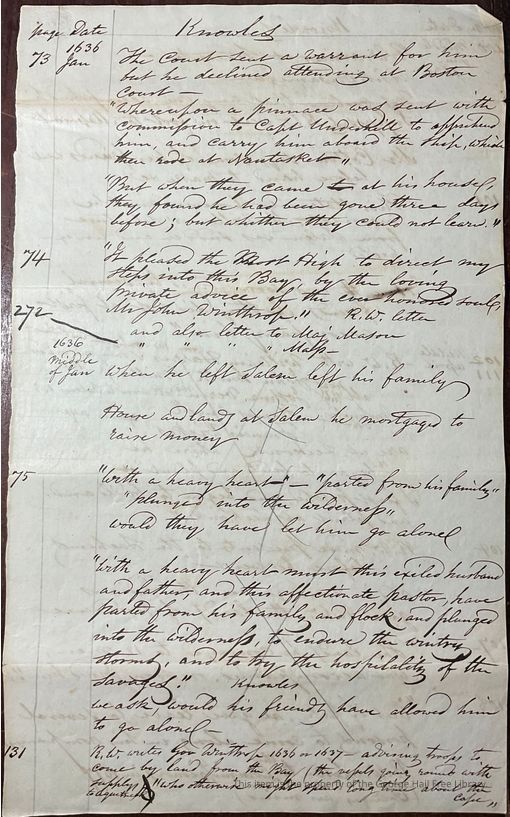 page Date Knowles
73 1636 Jan The Court sent a warrant for him
but he declined attending at Boston
Court —
"Whereupon a pinnace was sent with
commission to Capt Underhill to apprehend
him, and carry him aboard the ship, which
then rode at Nantasket"
"But when they came to at his house,
they found he had been gone three days
before; but whither they could not learn."
74 "It pleased the Most High to direct my
steps into this Bay, by the loving
private advice of the ever honored soul,
272 Mr John Winthrop." R.W. letter
and also letter to Maj Mason
" " " " Mass—
1636
middle of Jan When he left Salem left his family
House and lands at Salem he mortgaged to
raise money
75 "With a heavy heart" — "parted from his family"
"plunged into the wilderness"
would they have let him go alone
"With a heavy heart must this exiled husband
and father, and this affectionate pastor, have
parted from his family and flock, and plunged
into the wilderness, to endure the wintry
storms, and to try the hospitality of the
savages." Knowles
we ask, would his friends have allowed him
to go alone—
131 R.W. writes Gov Winthrop 1636 or 1637 — advising troops to
come by land from the Bay (the vessels going round with
supplies "who otherwise long time about the
Cape"
This item is the property of the George Hail Free Library